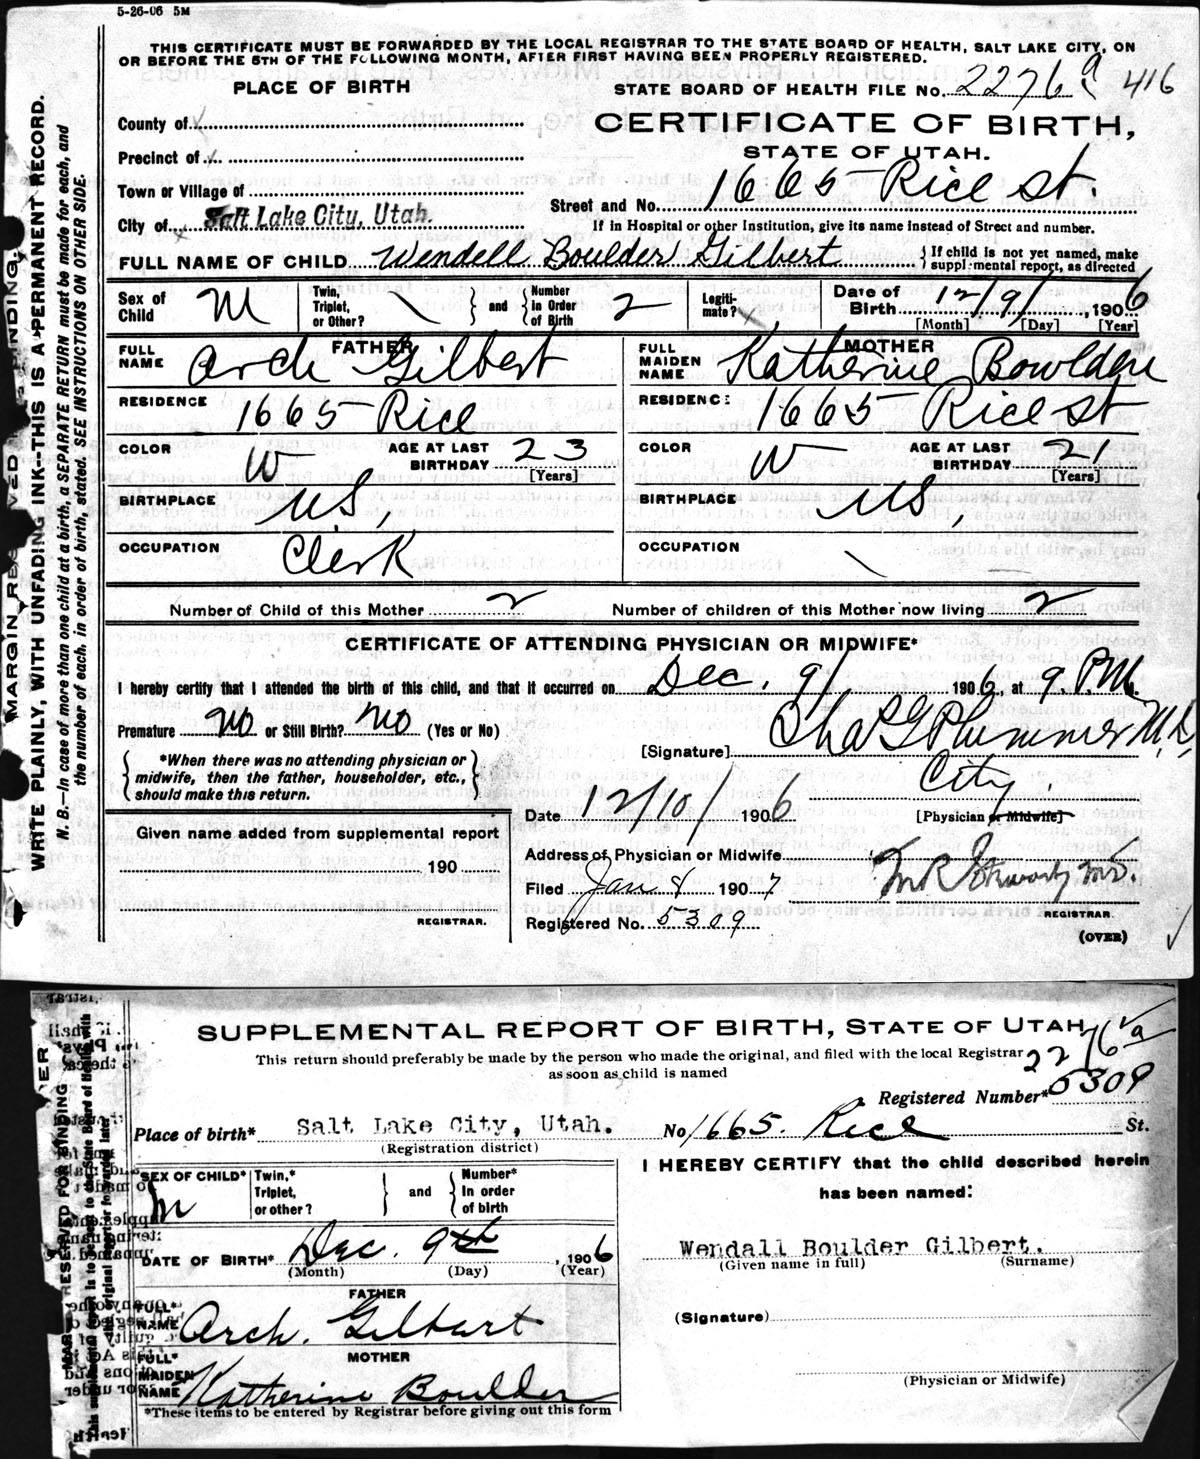 5-26-06 5M
THIS CERTIFICATE MUST BE FORWARDED BY THE LOCAL REGISTRAR TO THE STATE BOARD OF HEALTH, SALT LAKE CITY, ON
OR BEFORE THE 5TH OF THE FOLLOWING MONTH, AFTER FIRST HAVING BEEN PROPERLY REGISTERED.
PLACE OF BIRTH
STATE BOARD OF HEALTH FILE No. 2276 a 416
County of
CERTIFICATE OF BIRTH,
Precinct of
STATE OF UTAH.
Town or Village of
Street and No. 1665 Rice St.
City of Salt Lake City, Utah.
If in Hospital or other Institution, give its name instead of Street and number.
FULL NAME OF CHILD Wendell Boulder Gilbert { If child is not yet named, make supplemental report, as directed
Sex of Child M
Twin, Triplet, or Other? \ } and { Number in Order of Birth 2
Legitimate?
Date of Birth 12/9/, 1906
[Month] [Day] [Year]
FATHER
FULL NAME Arch Gilbert
MOTHER
FULL MAIDEN NAME Katherine Bowlden
RESIDENCE 1665 Rice
RESIDENCE 1665 Rice St
COLOR W AGE AT LAST BIRTHDAY 23 [Years]
COLOR W AGE AT LAST BIRTHDAY 21 [Years]
BIRTHPLACE US,
BIRTHPLACE US,
OCCUPATION Clerk
OCCUPATION \
Number of Child of this Mother 2 Number of children of this Mother now living 2
CERTIFICATE OF ATTENDING PHYSICIAN OR MIDWIFE*
I hereby certify that I attended the birth of this child, and that it occurred on Dec. 9/ 1906, at 9. P.M.
Premature No or Still Birth? No (Yes or No)
[Signature] Chas G Plummer M.D.
*When there was no attending physician or
midwife, then the father, householder, etc.,
should make this return.
City.
Date 12/10/ 1906 [Physician or Midwife]
Given name added from supplemental report
190
REGISTRAR.
Address of Physician or Midwife
Filed Jan 8 1907
M.D.
REGISTRAR.
Registered No. 5309
(OVER)
MARGIN RESERVED FOR BINDING.
WRITE PLAINLY, WITH UNFADING INK--THIS IS A PERMANENT RECORD.
N. B.—In case of more than one child at a birth, a SEPARATE RETURN must be made for each, and
the number of each, in order of birth, stated. SEE INSTRUCTIONS ON OTHER SIDE.
SUPPLEMENTAL REPORT OF BIRTH, STATE OF UTAH
This return should preferably be made by the person who made the original, and filed with the local Registrar
as soon as child is named
2276 a
Registered Number* 5309
Place of birth* Salt Lake City, Utah. No 1665. Rice St.
(Registration district)
SEX OF CHILD* M
Twin,* Triplet, or other? } and { Number* In order of birth
DATE OF BIRTH* Dec. 9th, 1906
(Month) (Day) (Year)
FATHER
FULL* NAME Arch. Gilbert
MOTHER
FULL* MAIDEN NAME Katherine Boulder
*These items to be entered by Registrar before giving out this form
I HEREBY CERTIFY that the child described herein
has been named:
Wendall Boulder Gilbert.
(Given name in full) (Surname)
(Signature)
(Physician or Midwife)